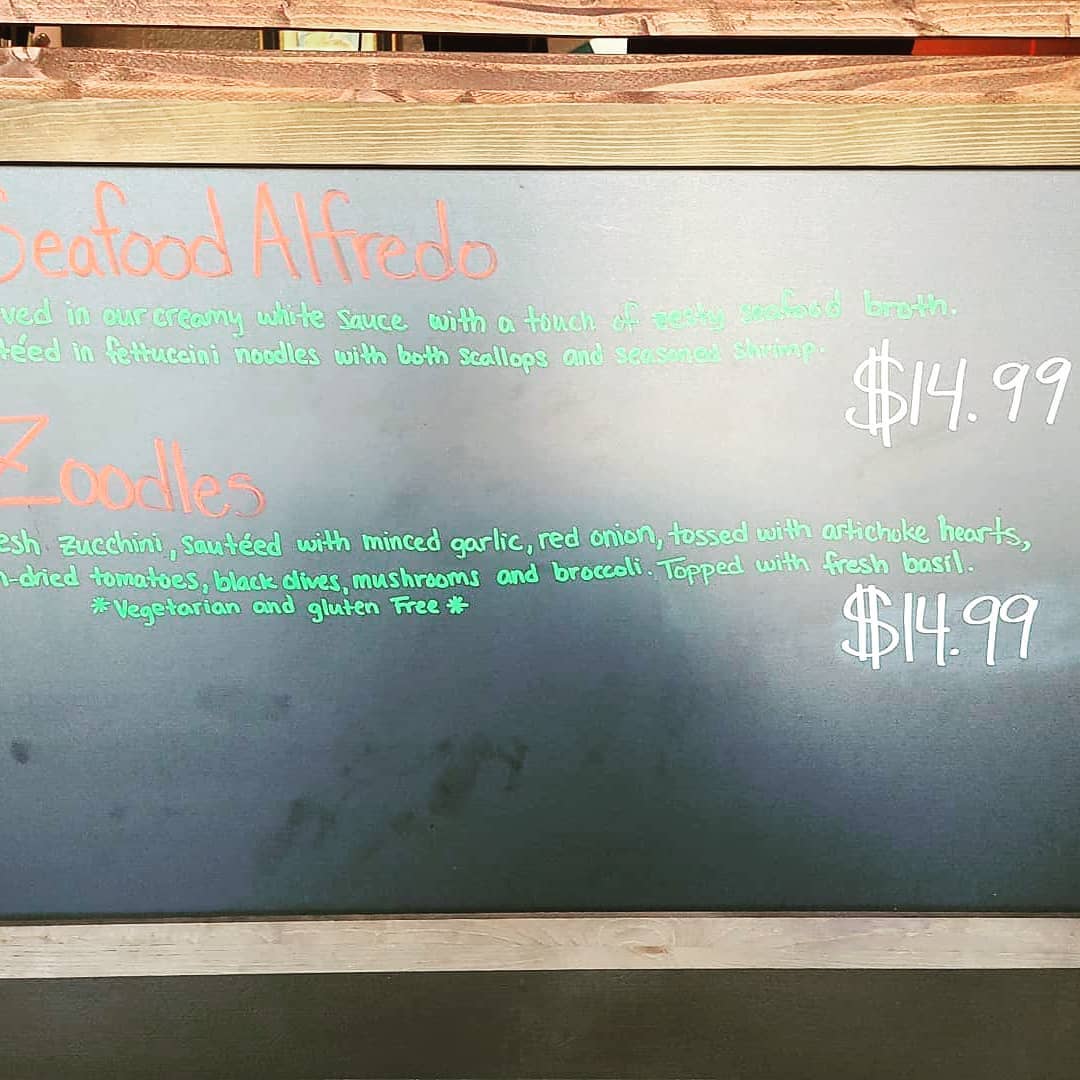 Seafood Alfredo
ved in our creamy white sauce with a touch of zesty seafood broth.
téed in fettuccini noodles with both scallops and seasoned shrimp.
$14.99
Zoodles
esh zucchini, sautéed with minced garlic, red onion, tossed with artichoke hearts,
n-dried tomatoes, black olives, mushrooms and broccoli. Topped with fresh basil.
*Vegetarian and gluten Free*
$14.99